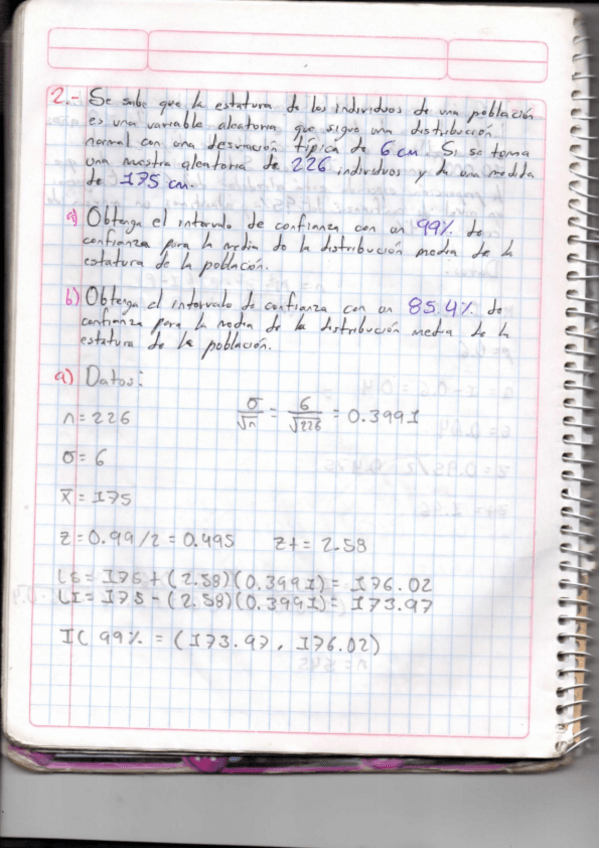 2.- Se sabe que la estatura de los individuos de una población
es una variable aleatoria que sigue una distribución
normal con una desviación típica de 6 cm. Si se toma
una muestra aleatoria de 226 individuos y da una medida
de 175 cm.
a) Obtenga el intervalo de confianza con un 99% de
confianza para la media de la distribución media de la
estatura de la población.
b) Obtenga el intervalo de confianza con un 85.4% de
confianza para la media de la distribución media de la
estatura de la población.
a) Datos:
n = 226 σ/√n = 6/√226 = 0.3991
σ = 6
x̄ = 175
z = 0.99/2 = 0.495 Zt = 2.58
LS = 175 + (2.58)(0.3991) = 176.02
LI = 175 - (2.58)(0.3991) = 173.97
IC 99% = (173.97, 176.02)